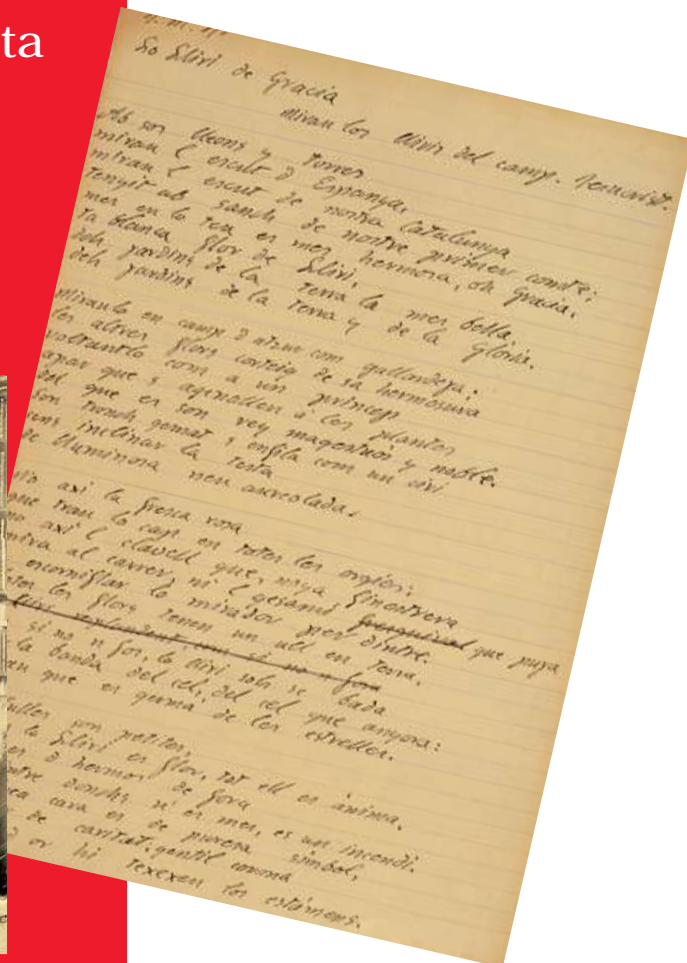 ta
Lo Lliri de Gracia
Mirau los lliris del camp. Jesucrist.
Ab son lleons y torres
mirau l escut d Espanya,
mirau l escut de nostra Catalunya
tenyit ab sanch de nostre primer comte;
mes en lo teu es mes hermosa, oh Gracia,
ta blanca flor de Lliri,
dels jardins de la terra la mes bella,
dels jardins de la terra y de la Gloria.
Miraula en camp d atzur com gallardeja;
les altres flors corteig de sa hermosura
voltantlo com a un princep
apar que s agenollen a les plantes
del que es son rey magestuós y noble.
son tronch gemat s enfila com un ciri
sens inclinar la testa
de lluminosa neu aureolada.
No axí la fresca rosa
que trau lo cap en totes les orgies;
no axí l clavell que, mitja finestrera
mira al carrer, ni l gesamí que puja
a escorniflar lo mirador per dintre.
totes les flors tenen un ull en terra,
si no n fos, lo lliri sols se bada
a la banda del cel, del cel que anyora:
que es germà de les estrelles.
fulles son petites,
lo Lliri es flor, tot ell es ànima,
es d hermós de fora
dintre donchs n es mes, es un incendi.
cara es de puresa símbol,
de caritat: gentil corona
d or hi texexen los estámens.